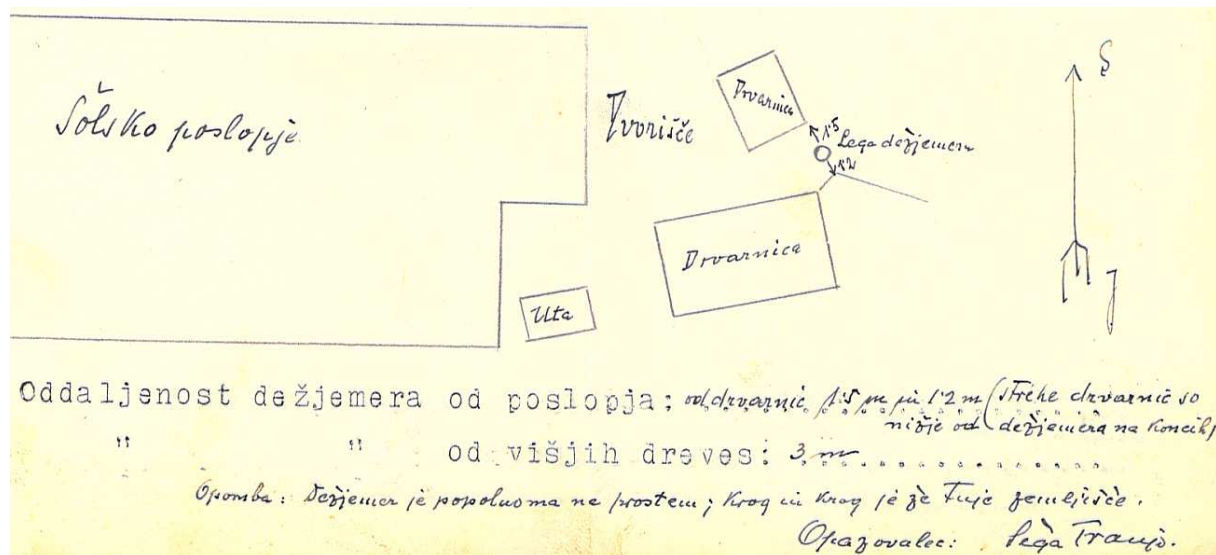 Š
Šolsko poslopje
Dvorišče
Drvarnica
1.5
Lega dežjemera
1.2
Drvarnica
Uta
J
Oddaljenost dežjemera od poslopja: od drvarnic 1.5 m in 1.2 m (strehe drvarnic so
nižje od dežjemera na koncih)
" " od višjih dreves: 3 m
Opomba: Dežjemer je popolnoma na prostem; krog in krog je že tuje zemljišče.
Opazovalec: Franjo.